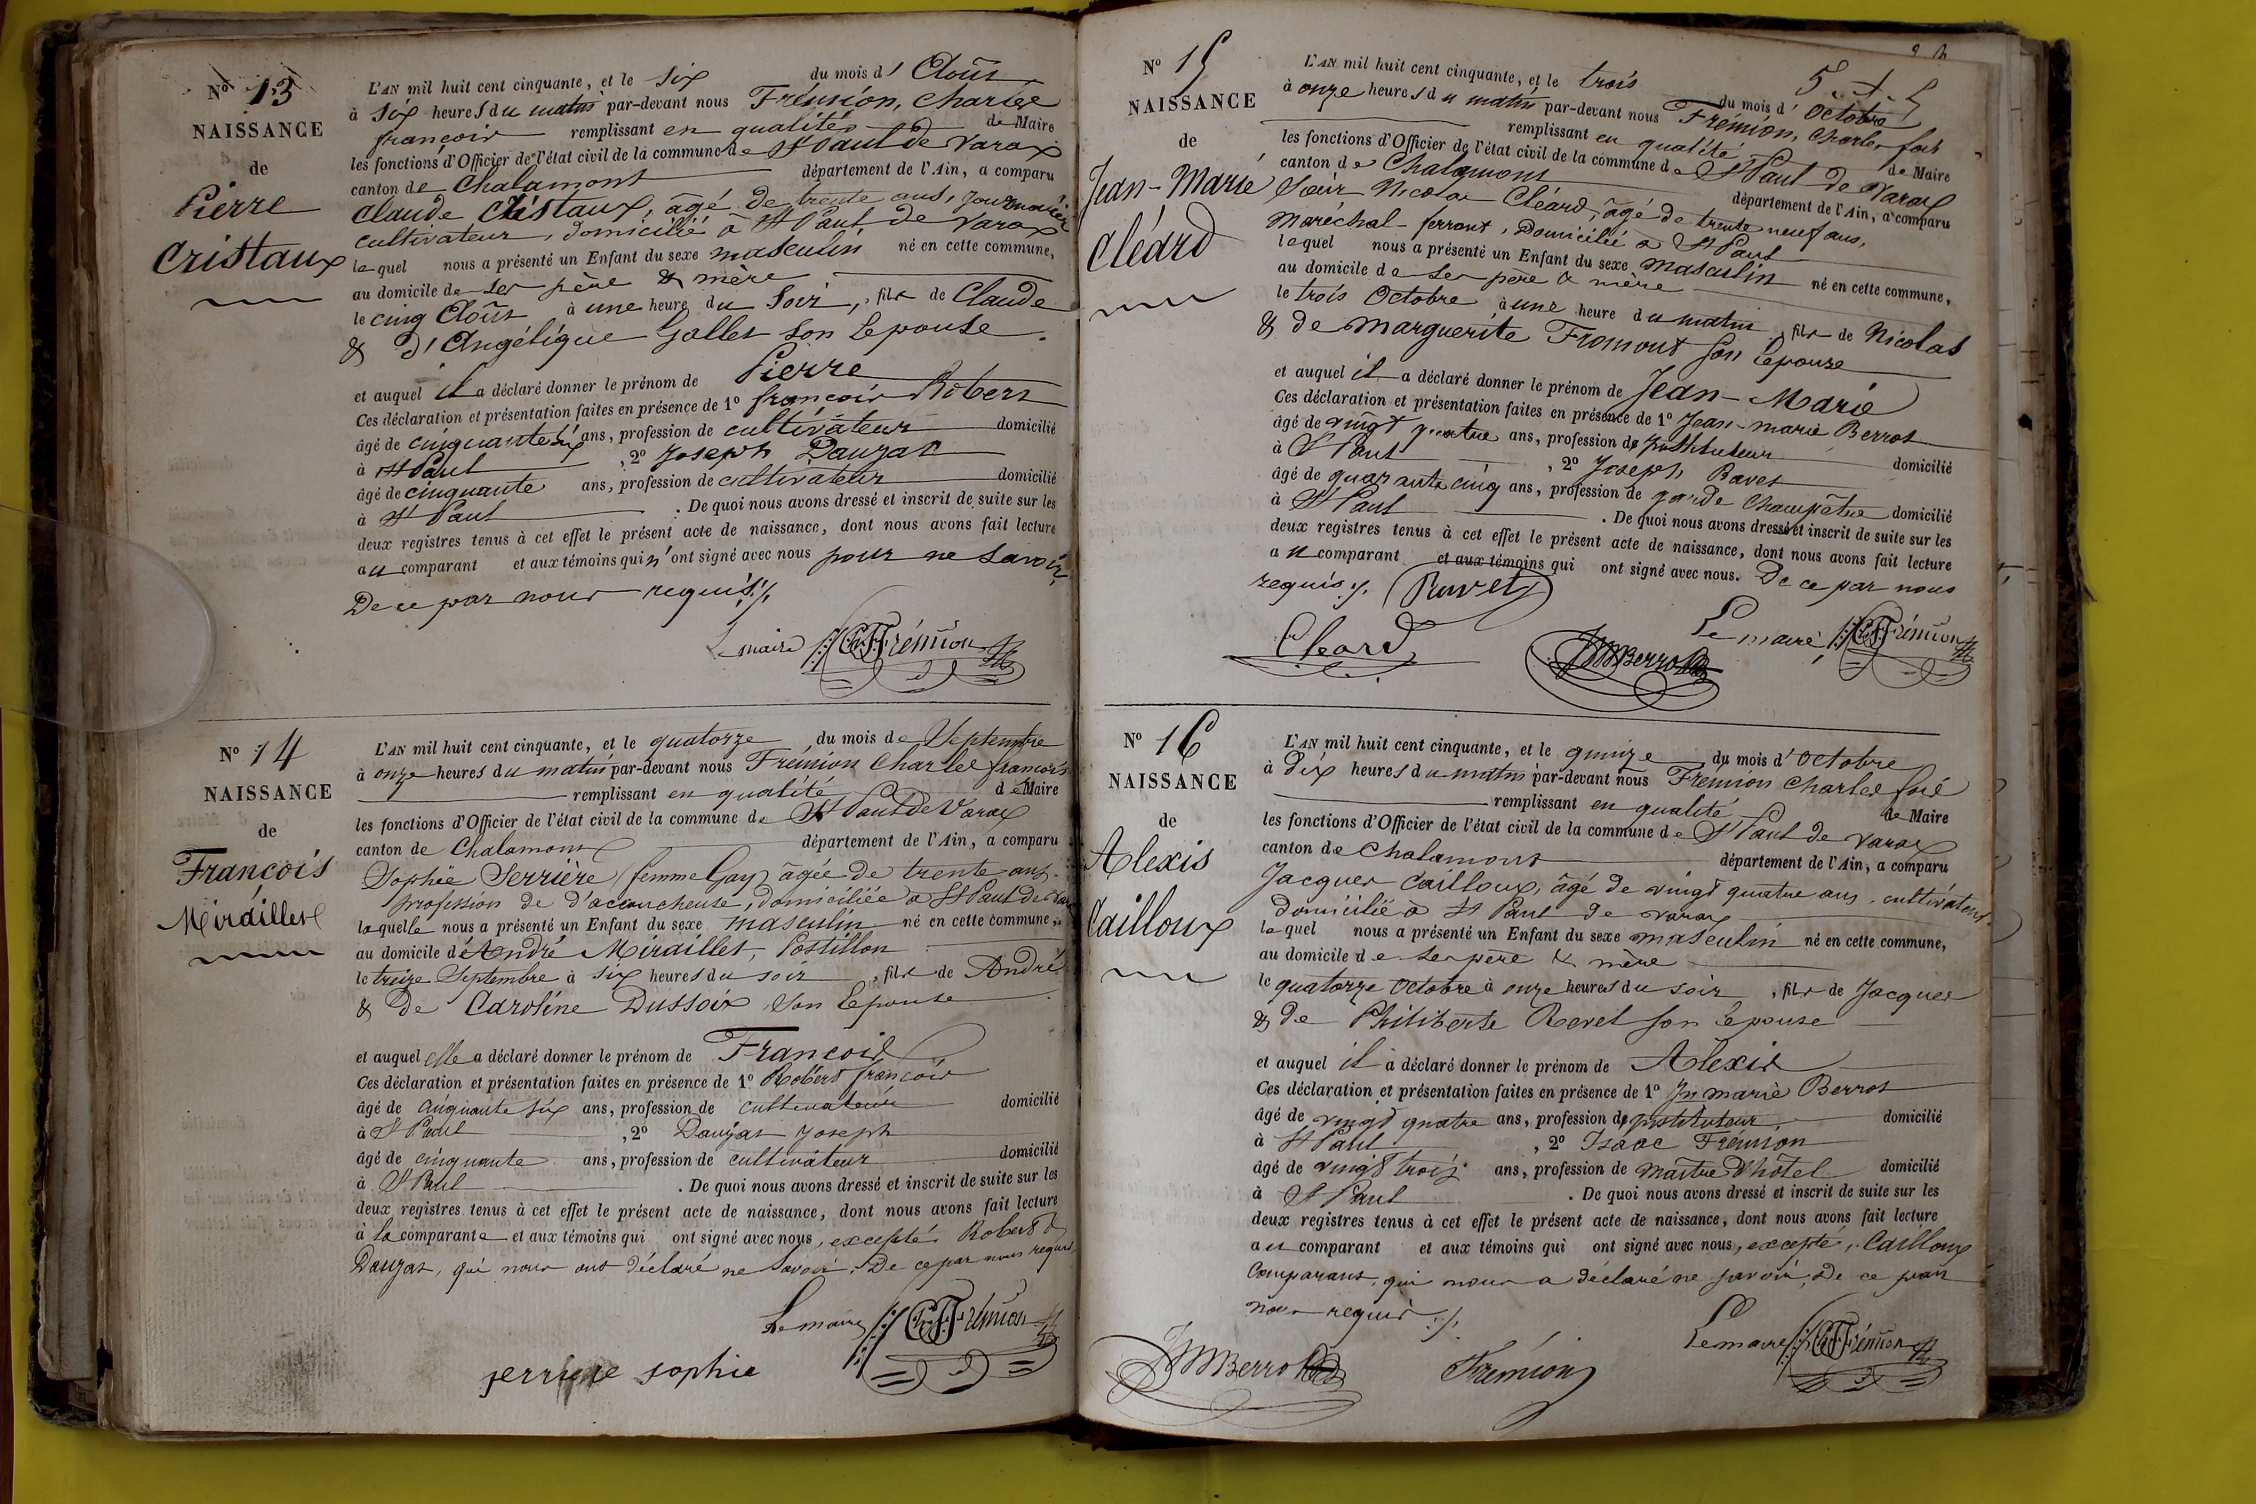 N° 13
NAISSANCE
de
Pierre
Cristaux
L'AN mil huit cent cinquante, et le six du mois d' Août
à six heures du matin par-devant nous Frémion, Charles
françois remplissant en qualité de Maire
les fonctions d'Officier de l'état civil de la commune de St Paul de Varax
canton de Chalamont département de l'Ain, a comparu
Claude Cristaux, âgé de trente ans, journalier
cultivateur, domicilié à St Paul de Varax
lequel nous a présenté un Enfant du sexe masculin né en cette commune,
au domicile de ses père & mère
le cinq Août à une heure du Soir, fils de Claude
& d'Angélique Gallet son Epouse.
et auquel il a déclaré donner le prénom de Pierre
Ces déclaration et présentation faites en présence de 1° françois Robert
âgé de cinquante six ans, profession de cultivateur domicilié
à St Paul , 2° Joseph Dauzat
âgé de cinquante ans, profession de cultivateur domicilié
à St Paul . De quoi nous avons dressé et inscrit de suite sur les
deux registres tenus à cet effet le présent acte de naissance, dont nous avons fait lecture
au comparant et aux témoins qui n'ont signé avec nous pour ne savoir
De ce par nous requis
Le maire Ch F Frémion
N° 14
NAISSANCE
de
François
Miraillet
L'AN mil huit cent cinquante, et le quatorze du mois de Septembre
à onze heures du matin par-devant nous Frémion Charles françois
remplissant en qualité de Maire
les fonctions d'Officier de l'état civil de la commune de St Paul de Varax
canton de Chalamont département de l'Ain, a comparu
Sophie Serrière femme Gay, âgée de trente ans
profession de d'accoucheuse, domiciliée à St Paul de Varax
laquelle nous a présenté un Enfant du sexe masculin né en cette commune,
au domicile d'André Miraillet, Postillon
le treize Septembre à six heures du soir , fils de André
& de Caroline Dussoix son Epouse
et auquel elle a déclaré donner le prénom de François
Ces déclaration et présentation faites en présence de 1° Robert françois
âgé de cinquante six ans, profession de cultivateur domicilié
à St Paul , 2° Dauzat Joseph
âgé de cinquante ans, profession de cultivateur domicilié
à St Paul . De quoi nous avons dressé et inscrit de suite sur les
deux registres tenus à cet effet le présent acte de naissance, dont nous avons fait lecture
à la comparante et aux témoins qui ont signé avec nous, exceptés Robert &
Dauzat, qui nous ont déclaré ne savoir, De ce par nous requis
Le maire Ch F Frémion
serriere sophie
N° 15
NAISSANCE
de
Jean-Marie
Cléard
L'AN mil huit cent cinquante, et le trois du mois d' Octobre
à onze heures du matin par-devant nous Frémion, Charles fois
remplissant en qualité de Maire
les fonctions d'Officier de l'état civil de la commune de St Paul de Varax
canton de Chalamont département de l'Ain, a comparu
Sieur Nicolas Cléard, âgé de trente neuf ans,
Maréchal-ferrant, Domicilié à St Paul
lequel nous a présenté un Enfant du sexe masculin né en cette commune,
au domicile de ses père & mère
le trois Octobre à une heure du matin , fils de Nicolas
& de Marguerite Fromont son Epouse
et auquel il a déclaré donner le prénom de Jean-Marie
Ces déclaration et présentation faites en présence de 1° Jean-marie Berrot
âgé de vingt quatre ans, profession de instituteur domicilié
à St Paul , 2° Joseph Ravet
âgé de quarante cinq ans, profession de garde Champêtre domicilié
à St Paul . De quoi nous avons dressé et inscrit de suite sur les
deux registres tenus à cet effet le présent acte de naissance, dont nous avons fait lecture
au comparant et aux témoins qui ont signé avec nous. De ce par nous
requis Ravet
Le maire Ch F Frémion
Cleard JMBerrot
N° 16
NAISSANCE
de
Alexis
Cailloux
L'AN mil huit cent cinquante, et le quinze du mois d' Octobre
à dix heures du matin par-devant nous Frémion Charles fois
remplissant en qualité de Maire
les fonctions d'Officier de l'état civil de la commune de St Paul de Varax
canton de Chalamont département de l'Ain, a comparu
Jacques Cailloux, âgé de vingt quatre ans, cultivateur
domicilié à St Paul de Varax
lequel nous a présenté un Enfant du sexe masculin né en cette commune,
au domicile de ses père & mère
le quatorze Octobre à onze heures du soir , fils de Jacques
& de Philiberte Revel son Epouse
et auquel il a déclaré donner le prénom de Alexis
Ces déclaration et présentation faites en présence de 1° Jn marie Berrot
âgé de vingt quatre ans, profession de instituteur domicilié
à St Paul , 2° Isaac Frémion
âgé de vingt trois ans, profession de maître d'hôtel domicilié
à St Paul . De quoi nous avons dressé et inscrit de suite sur les
deux registres tenus à cet effet le présent acte de naissance, dont nous avons fait lecture
au comparant et aux témoins qui ont signé avec nous, excepté, Cailloux
Comparant, qui nous a déclaré ne savoir, De ce par
nous requis
Le maire Ch F Frémion
JMBerrot Frémion